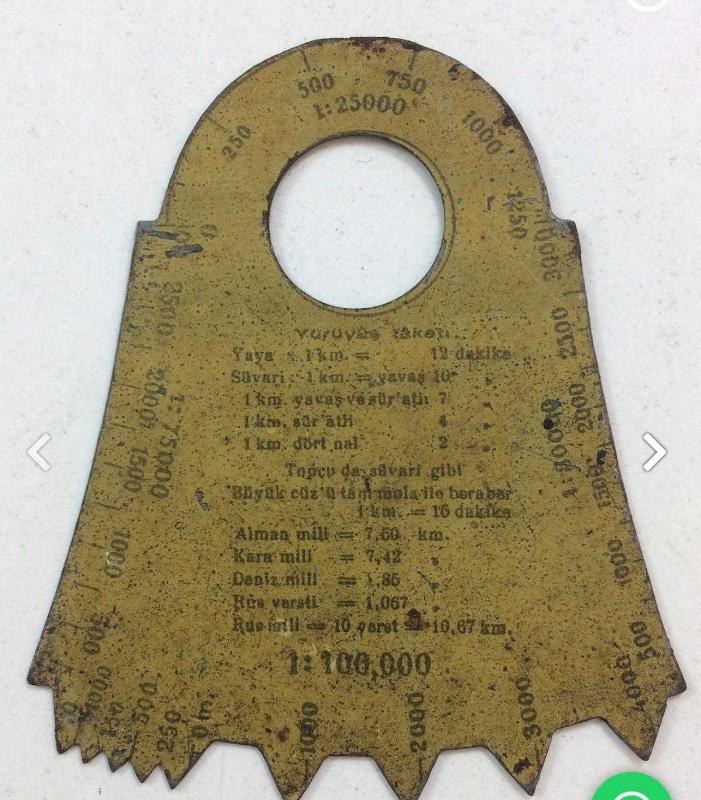 250 500 750 1000 1250
1:25000
0
3000
2500
2000
1500
1000
500
0
1:75000
2500
2000
1500
1000
500
1:80000
Yürüyüş tâkati
Yaya : 1 km. = 12 dakika
Süvari : 1 km. = yavaş 10 "
1 km. yavaş ve sür'atli 7 "
1 km. sür'atli 4 "
1 km. dört nal 2 "
Topçu da süvari gibi
Büyük cüz'ü tam mola ile beraber
1 km. = 15 dakika
Alman mili = 7,50 km.
Kara mili = 7,42 "
Deniz mili = 1,85 "
Rus versti = 1,067 "
Rus mili = 10 verst = 10,67 km.
1:100,000
1000 750 500 250 0 m. 1000 2000 3000 4000